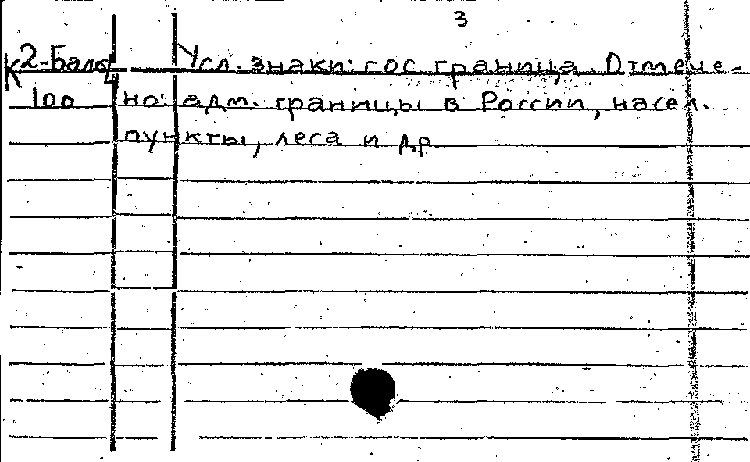 3
К2-Балт Усл. знаки: гос граница. Отмече-
100 но: адм. границы в России, насел.
пункты, леса и др